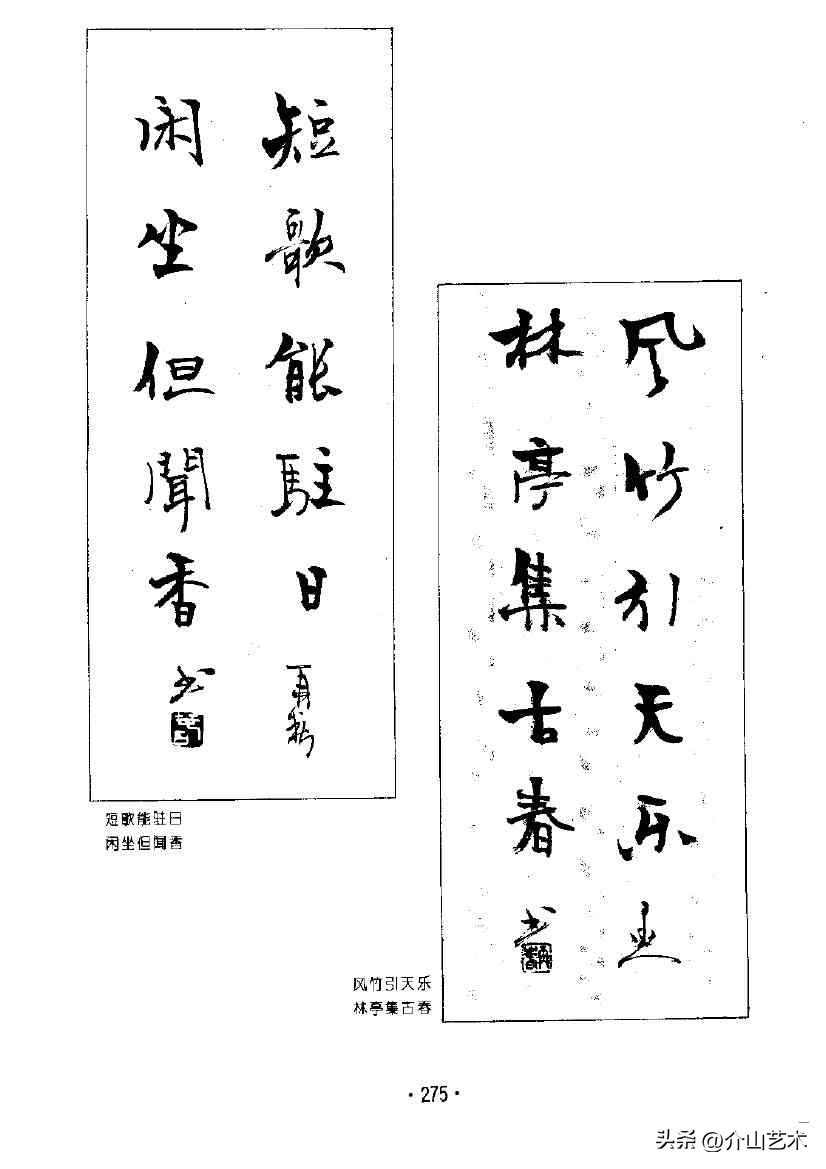 短歌能駐日
闲坐但聞香
书
短歌能驻日
闲坐但闻香
风竹引天乐
林亭集古春
书
风竹引天乐
林亭集古春
·275·
头条@介山艺术